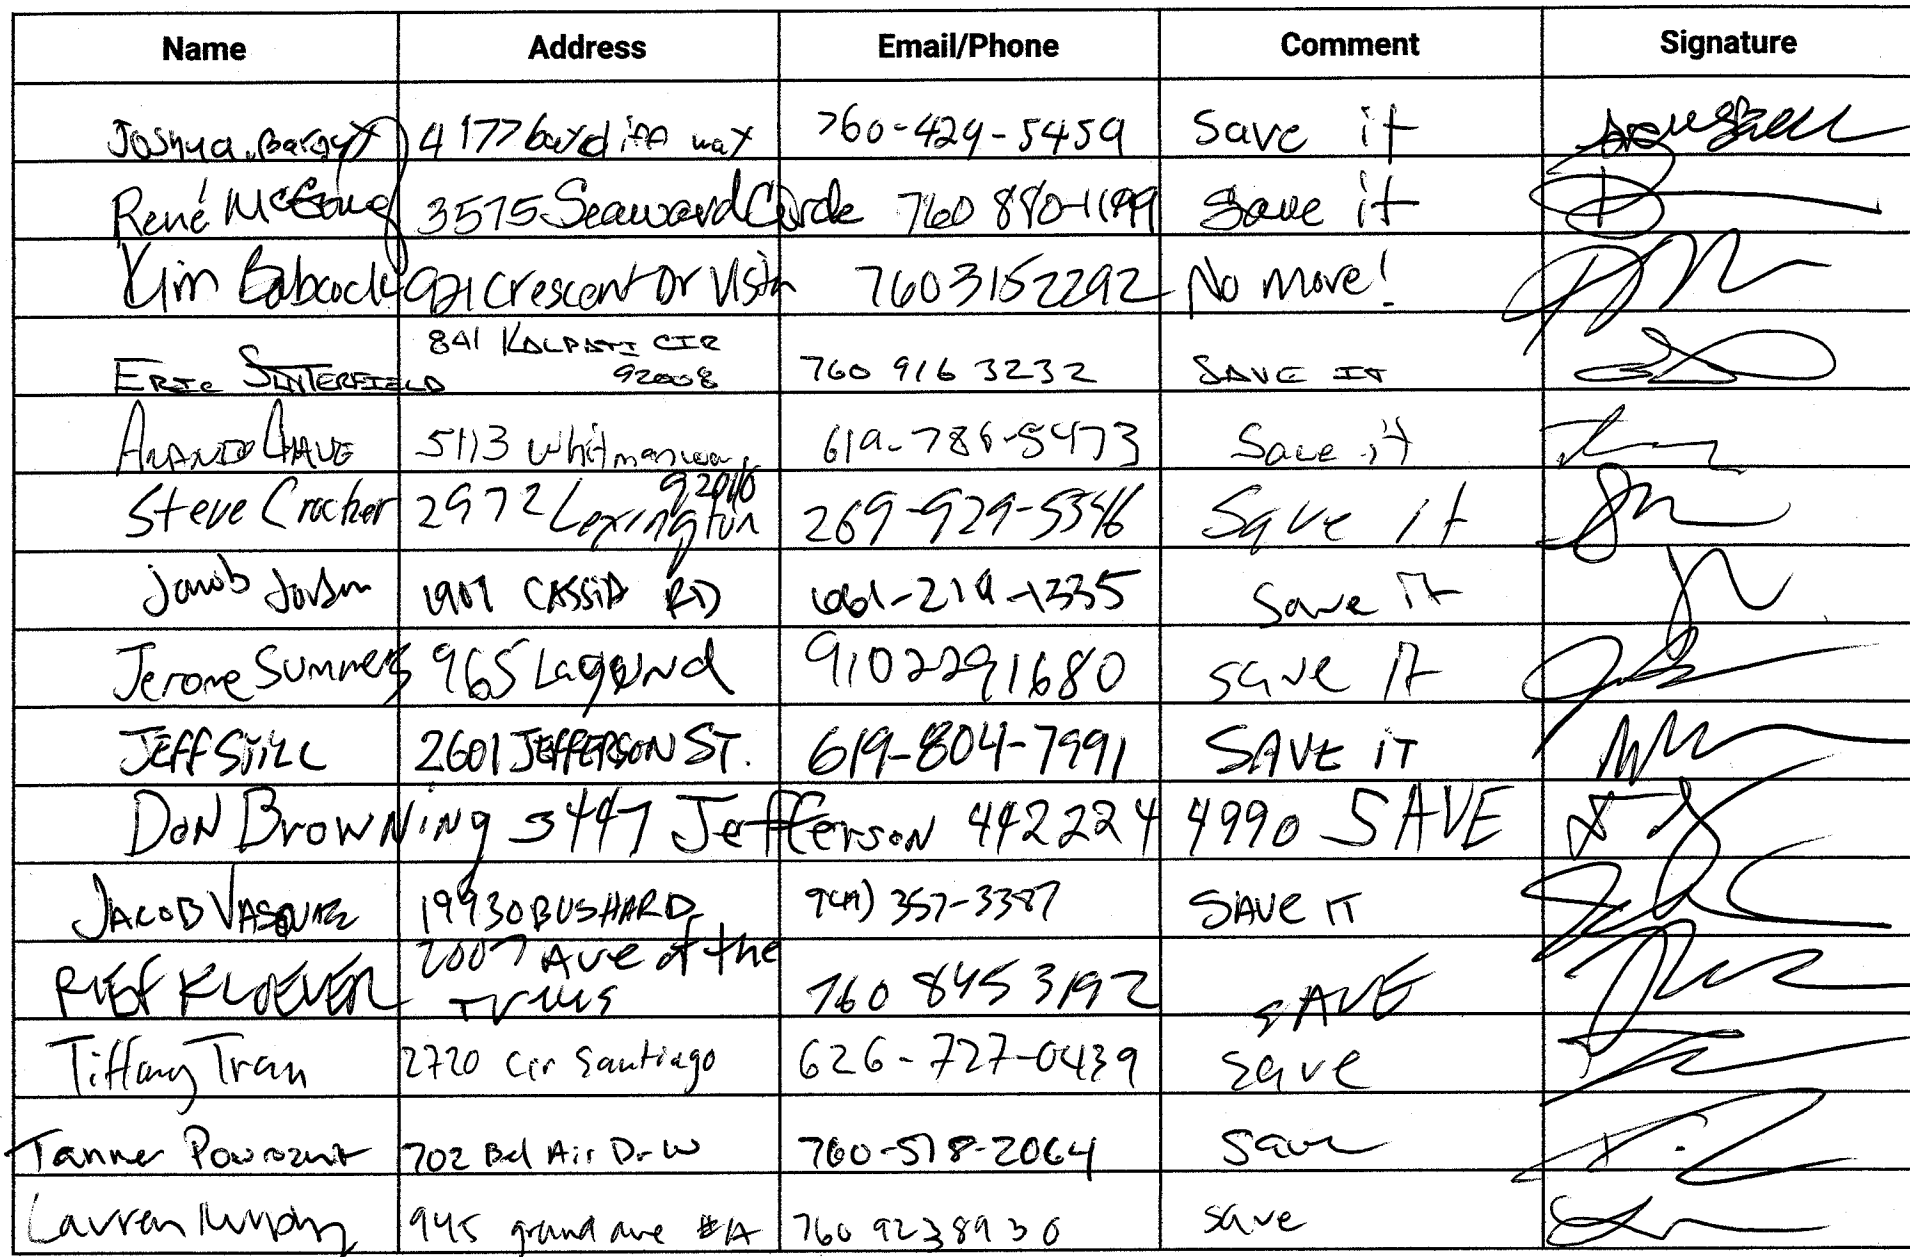 Name Address Email/Phone Comment Signature
Joshua 4177 way 760-429-5459 Save it
René 3575 Seaward Circle 760 880-1199 Save it
Kim Babcock 921 Crescent Dr Vista 7603152292 No move!
841 KALPATI CIR
ERIC SINTERFIELD 92008 760 916 3232 SAVE IT
5113 Whitman 619-786-5473 Save it
92010
Steve Crocker 2972 Lexington 269-929-5346 Save it
Jacob Jordan 1907 CASSIA RD 661-219-1335 Save it
Jerome Summers 965 Laguna 9102291680 save it
JEFF STILL 2601 JEFFERSON ST. 619-804-7991 SAVE IT
DON BROWNING 3447 Jefferson 442224 4990 SAVE
JACOB VASQUEZ 19930 BUSHARD 949) 357-3387 SAVE IT
2007 Ave of the
KLOEVER 760 845 3192 SAVE
Tiffany Tran 2720 Cir Santiago 626-727-0439 save
Tanner 702 Bel Air Dr W 760-518-2064 Save
Lauren Murphy 945 grand ave #A 760 9238930 save